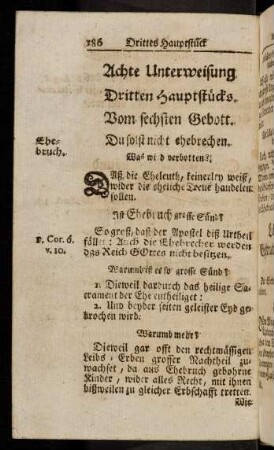 186 Drittes Hauptstück
Achte Unterweisung
Dritten Hauptstücks.
Vom sechsten Gebott.
Ehe-
bruch.
Du solst nicht ehebrechen.
Was wird verbotten?
Daß die Eheleuth, keinerley weiß,
wider die eheliche Treue handelen
sollen.
Ist Ehebruch grosse Sünd?
1. Cor. 6.
v. 10.
So groß, daß der Apostel diß Urtheil
fället: Auch die Ehebrecher werden
das Reich GOttes nicht besitzen.
Warumb ist es so grosse Sünd?
1. Dieweil dardurch das heilige Sa-
crament der Ehe entheiliget:
2. Und beyder seiten geleister Eyd ge-
brochen wird.
Warumb mehr?
Dieweil gar offt den rechtmässigen
Leibs-Erben grosser Nachtheil zu-
wachset, da aus Ehebruch gebohrne
Kinder, wider alles Recht, mit ihnen
bißweilen zu gleicher Erbschafft tretten.
Wie